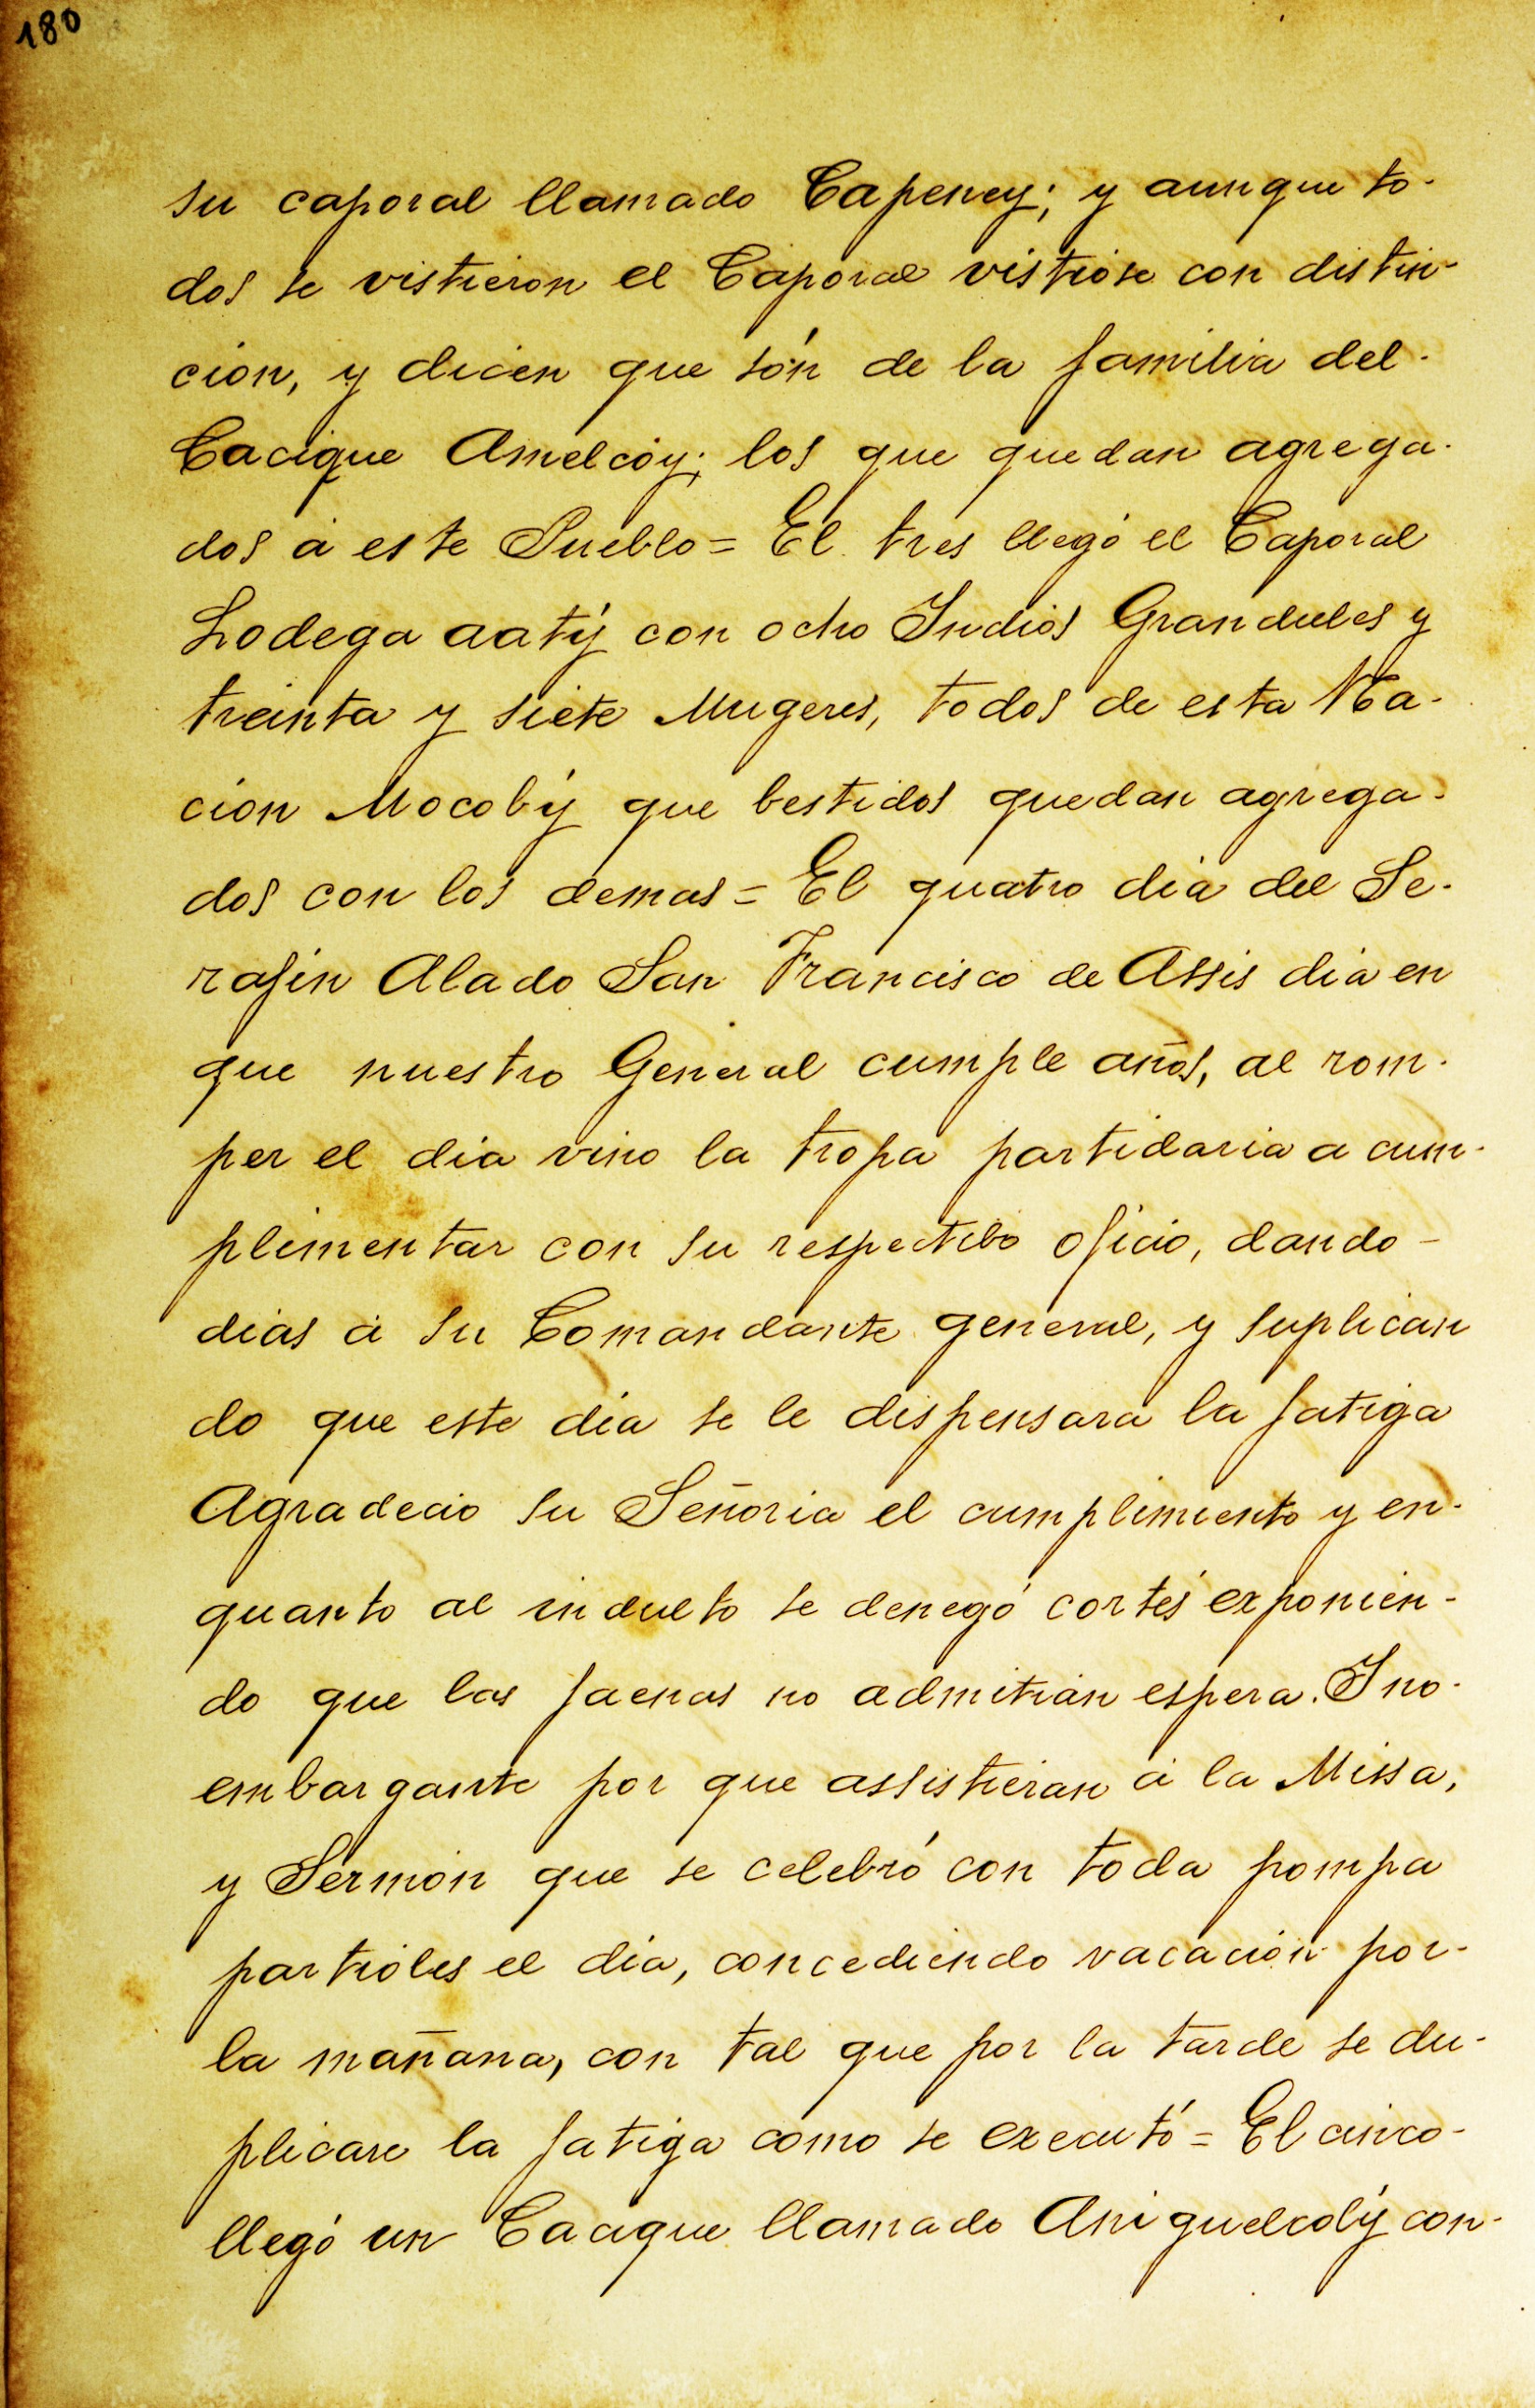 180
su caporal llamado Capeney; y aunque to-
dos se vistieron el Caporal vistiose con distin-
cion, y dicen que són de la familia del-
Cacique Amelcoy; los que quedan agrega-
dos á este Pueblo = El tres llegó el Caporal
Lodega aatý con ocho Indios Grandules y
treinta y siete Mugeres, todos de esta Na-
cion Mocobý que bestidos quedan agrega-
dos con los demas = El quatro dia del Se-
rafin Alado San Francisco de Assis dia en
que nuestro General cumple años, al rom-
per el dia vino la tropa partidaria a cum-
plimentar con su respectibo oficio, dando-
dias á su Comandante general, y suplican
do que este dia se le dispensara la fatiga
Agradecio su Señoria el cumplimiento y en-
quanto al indulto se denegó cortés exponien-
do que las faenas no admitian espera. I no-
embargante por que assistieran á la Missa,
y Sermon que se celebró con toda pompa
partioles el dia, concediendo vacacion por-
la mañana, con tal que por la tarde se du-
plicare la fatiga como se executó = El cinco-
llegó un Cacique llamado Aniguelcolý con-